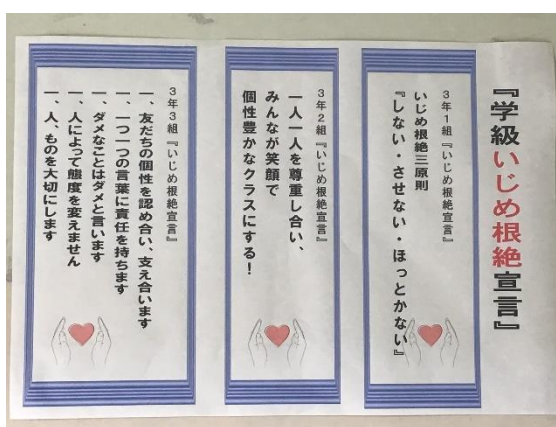 『学級いじめ根絶宣言』
3年1組『いじめ根絶宣言』
いじめ根絶三原則
『しない・させない・ほっとかない』
3年2組『いじめ根絶宣言』
一人一人を尊重し合い、
みんなが笑顔で
個性豊かなクラスにする!
3年3組『いじめ根絶宣言』
一、友だちの個性を認め合い、支え合います
一、一つ一つの言葉に責任を持ちます
一、ダメなことはダメと言います
一、人によって態度を変えません
一、人、ものを大切にします